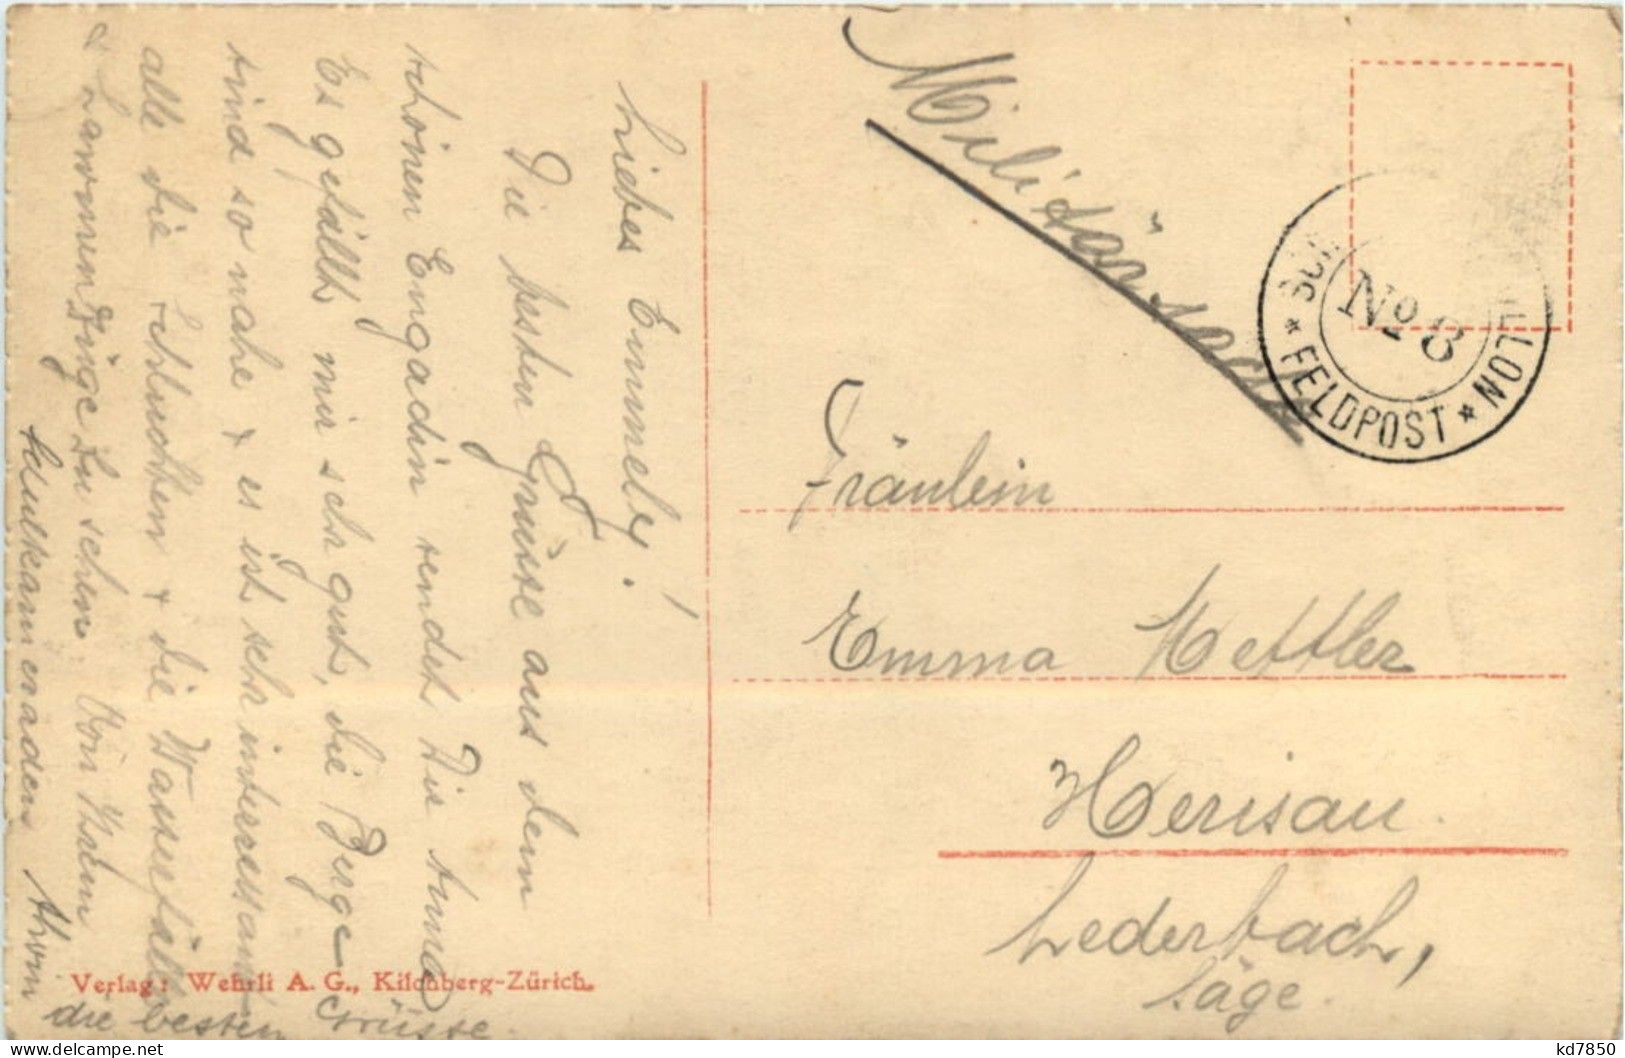 Liebes Emmely!
Die besten Grüsse aus dem
schönen Engadin sendet Dir Anna
Es gefällt mir sehr gut, die Berge
sind so nahe & es ist sehr interessant
alle die Schluchten & die Wasserfälle
& Lawinen züge zu sehen. Von
die besten Grüsse.
Militärsache
SCH
No 8
FELDPOST
Fräulein
Emma Mettler
Herisau.
Lederbach,
Säge.
Verlag: Wehrli A. G., Kilchberg-Zürich.
kd7850